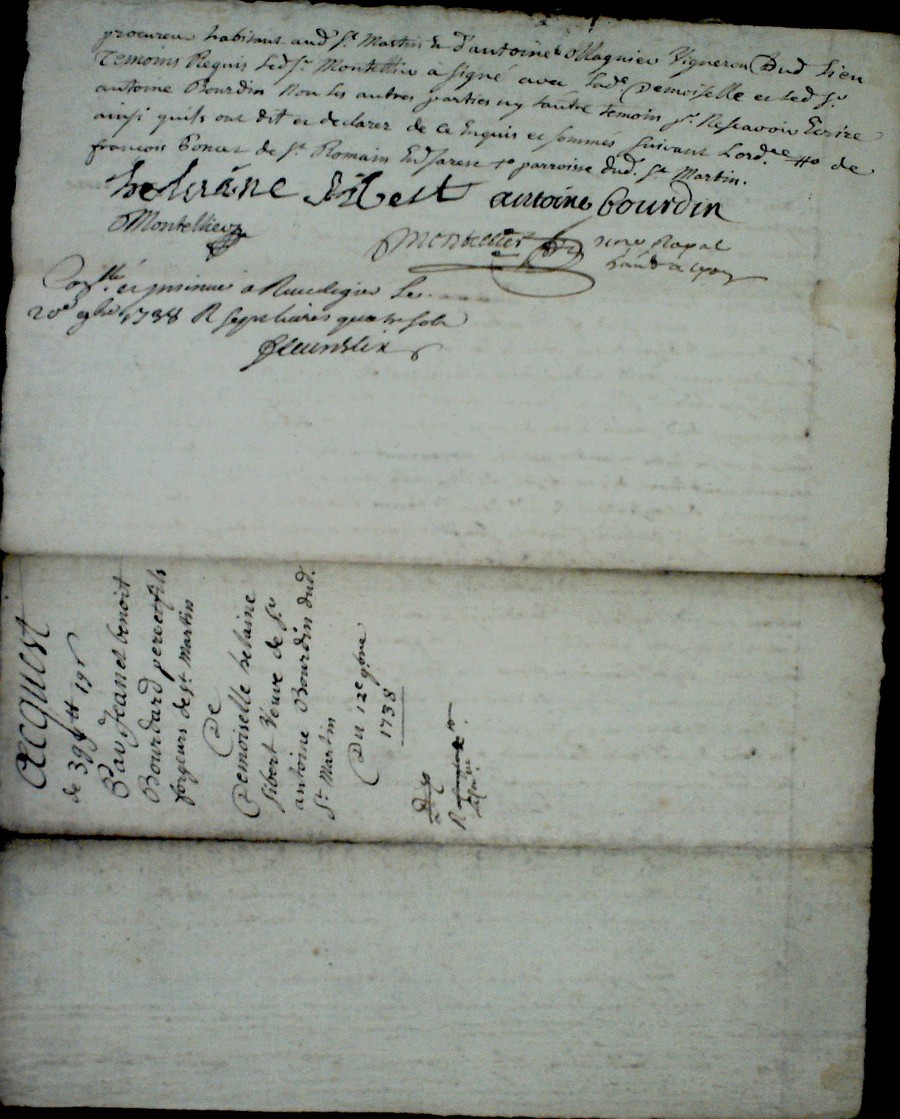 procureur habitant aud St. Martin & d'antoine Magnien Vigneron Dud Lieu
Temoins Requis Led Sr. Montellier a signé avec lade Demoiselle et led Sr.
antoine Bourdin Non les autres parties ny lautre temoin pr. Ne scavoir Ecrire
ainsi quils ont dit et declarer de ce Enquis et sommés suivant Lord.re de
francois Poncet de St. Romain En Jarest parroisse dud. St. Martin.
helaine antoine bourdin
Montellier
Montellier Royal
et insinué a Rivedegier Le
20e 9bre 1738 R sept livres quatre sols
acquest
de 19s
Par Jean et benoit
Bourdard pere et fils
forgeurs de St. Martin
De
Demoiselle helaine
sibert Veuve de Sr.
antoine Bourdin dud.
St. Martin
Du 12e 9bre
1738